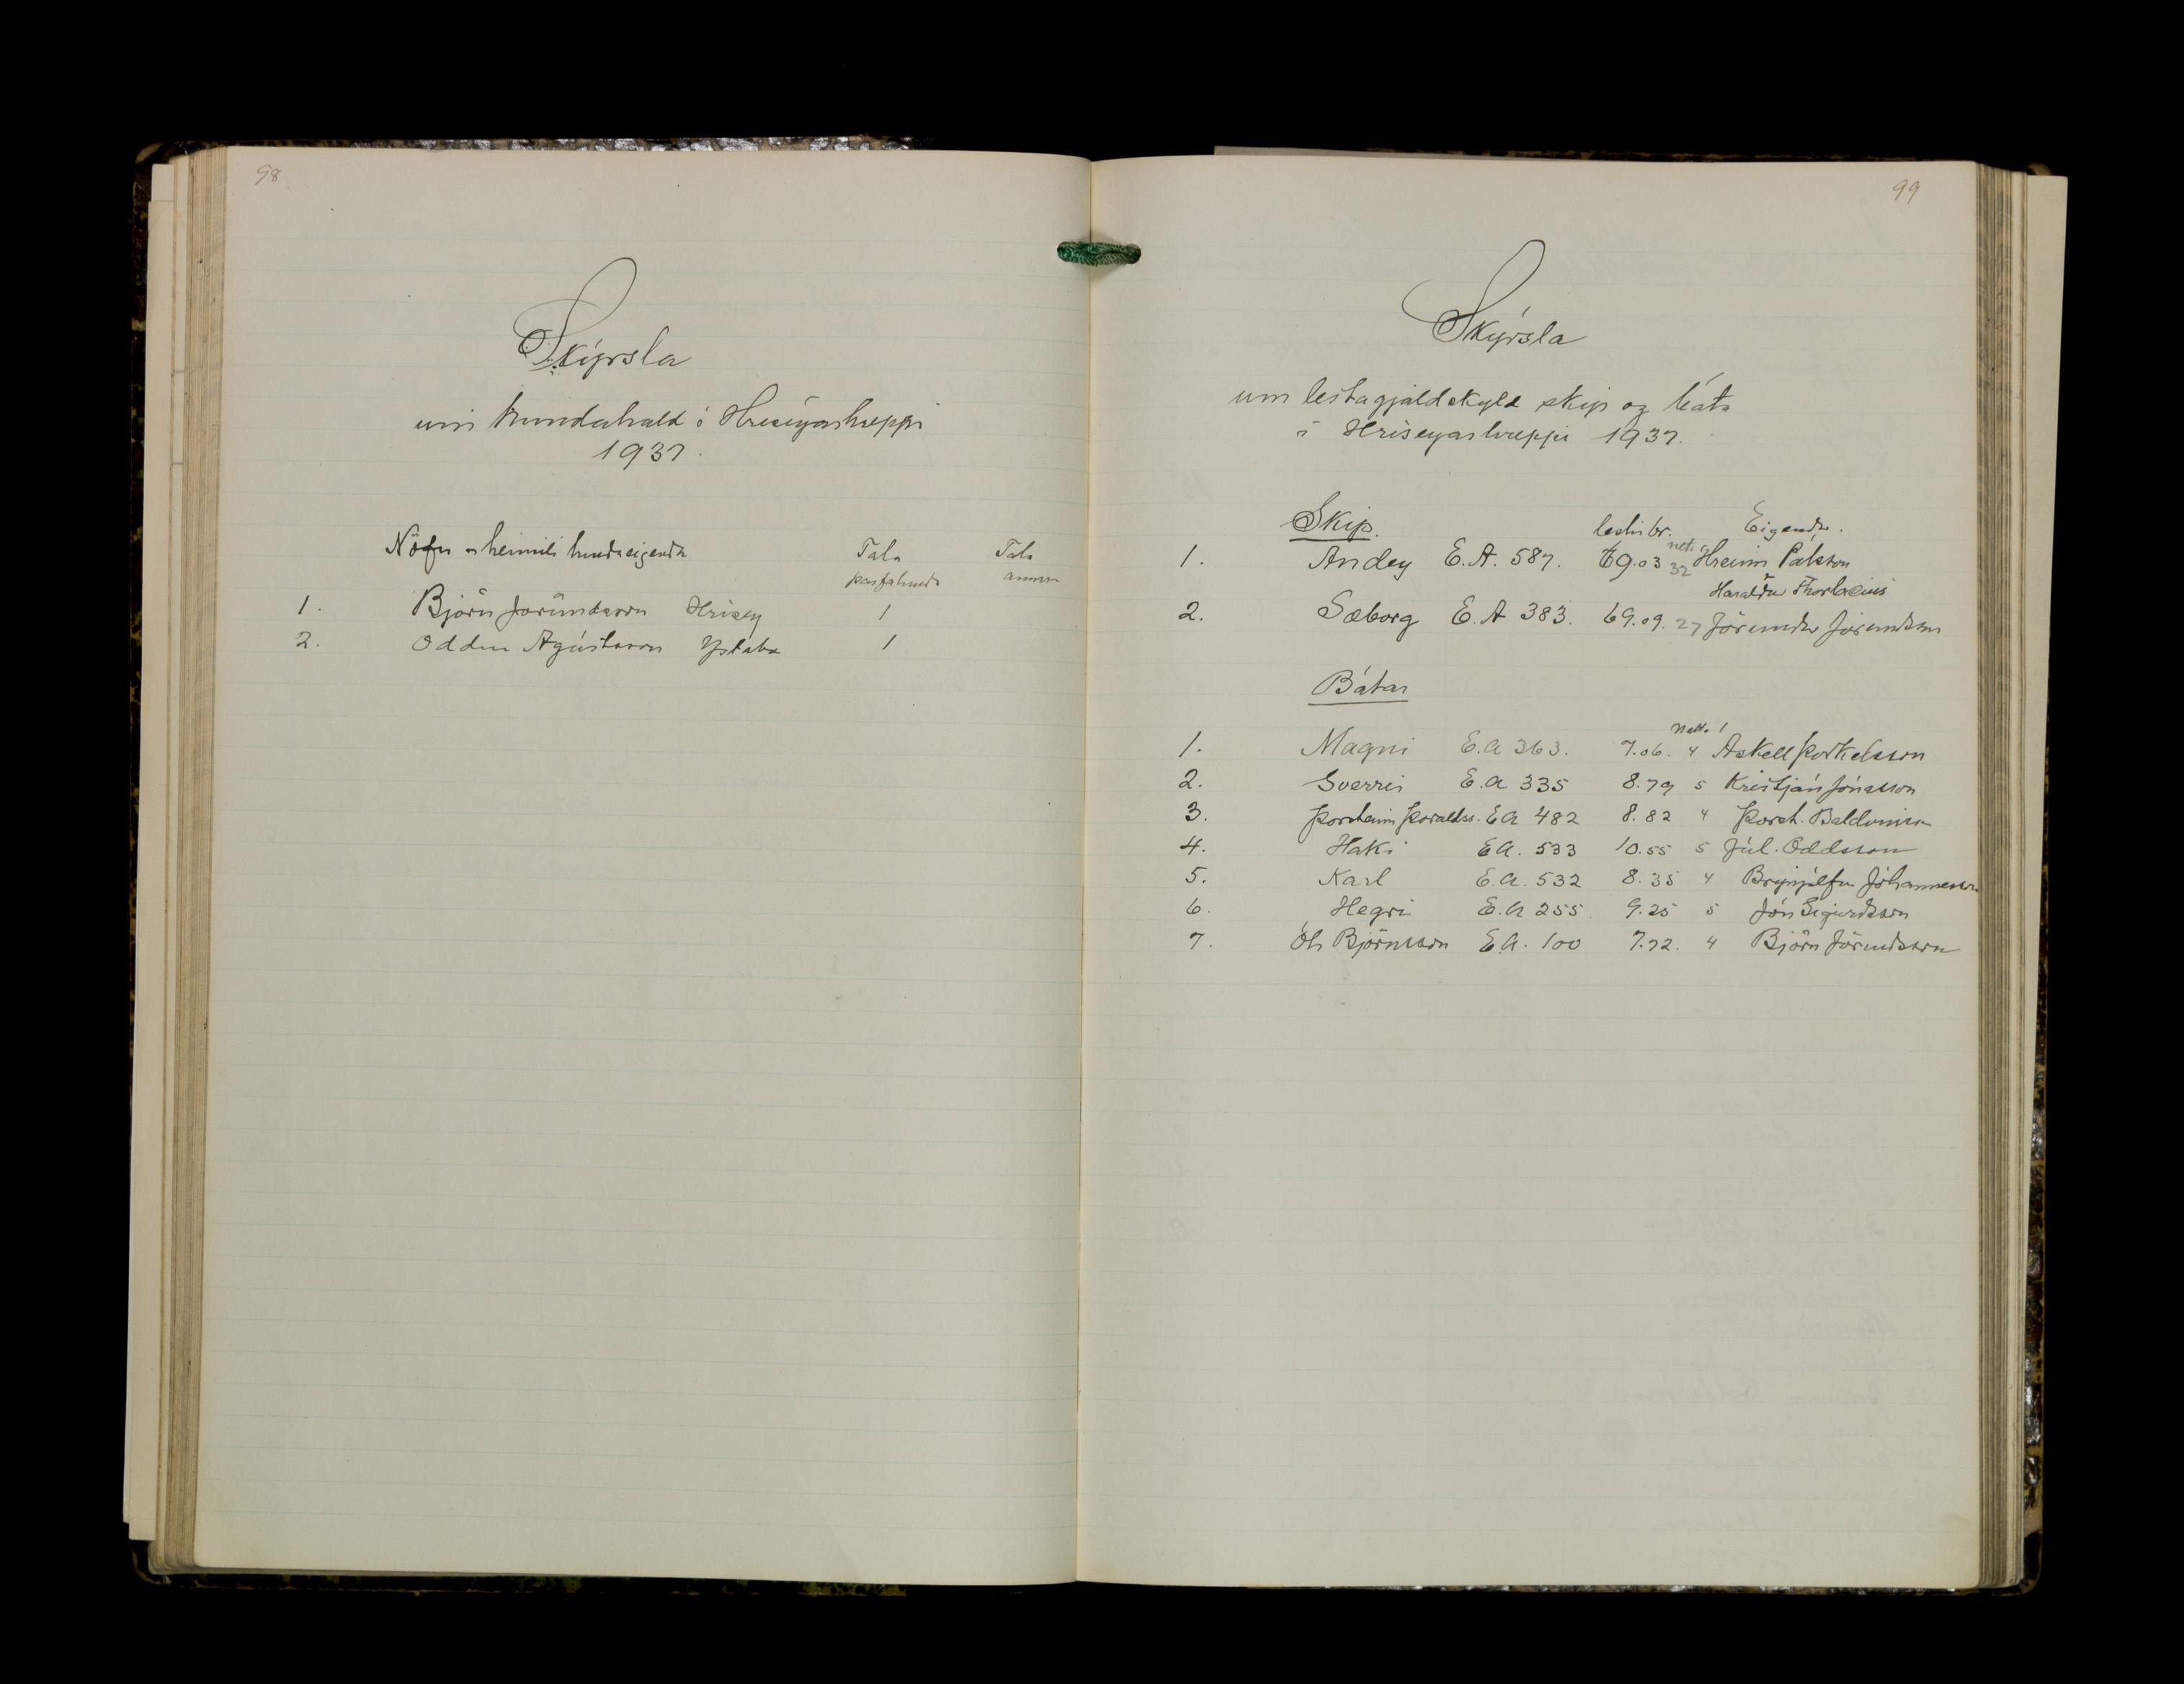 98
Skýrsla
um hundahald í Hríseyarhreppi
1937.
Nöfn og heimili hundaeigenda Tala þarfahunda Tala annara
1. Björn Jörundsson Hrísey 1
2. Oddur Ágústsson Ystabæ 1
99
Skýrsla
um lestagjaldskyld skip og báta
í Hríseyarhreppi 1937.
Skip. lestir br. netto Eigendr.
1. Andey E.A. 587. 69.03 32 Hreinn Pálsson
Haraldur Thorlacius
2. Sæborg E.A 383. 69.09. 27 Jörundur Jörundsson
Bátar
netto
1. Magni E.A 363. 7.06. 4 Áskell Þorkelsson
2. Sverrir E.A 335 8.79 5 Kristján Jónasson
3. Þorsteinn Þoraldss. EA 482 8.82 4 Þorst. Baldvinsson
4. Haki EA. 533 10.55 5 Júl. Oddsson
5. Karl E.A. 532 8.35 4 Brynjólfur Jóhannesson
6. Hegri E.A 255. 9.25 5 Jón Sigurdsson
7. Óli Björnsson EA. 100 7.72. 4 Björn Jörundsson